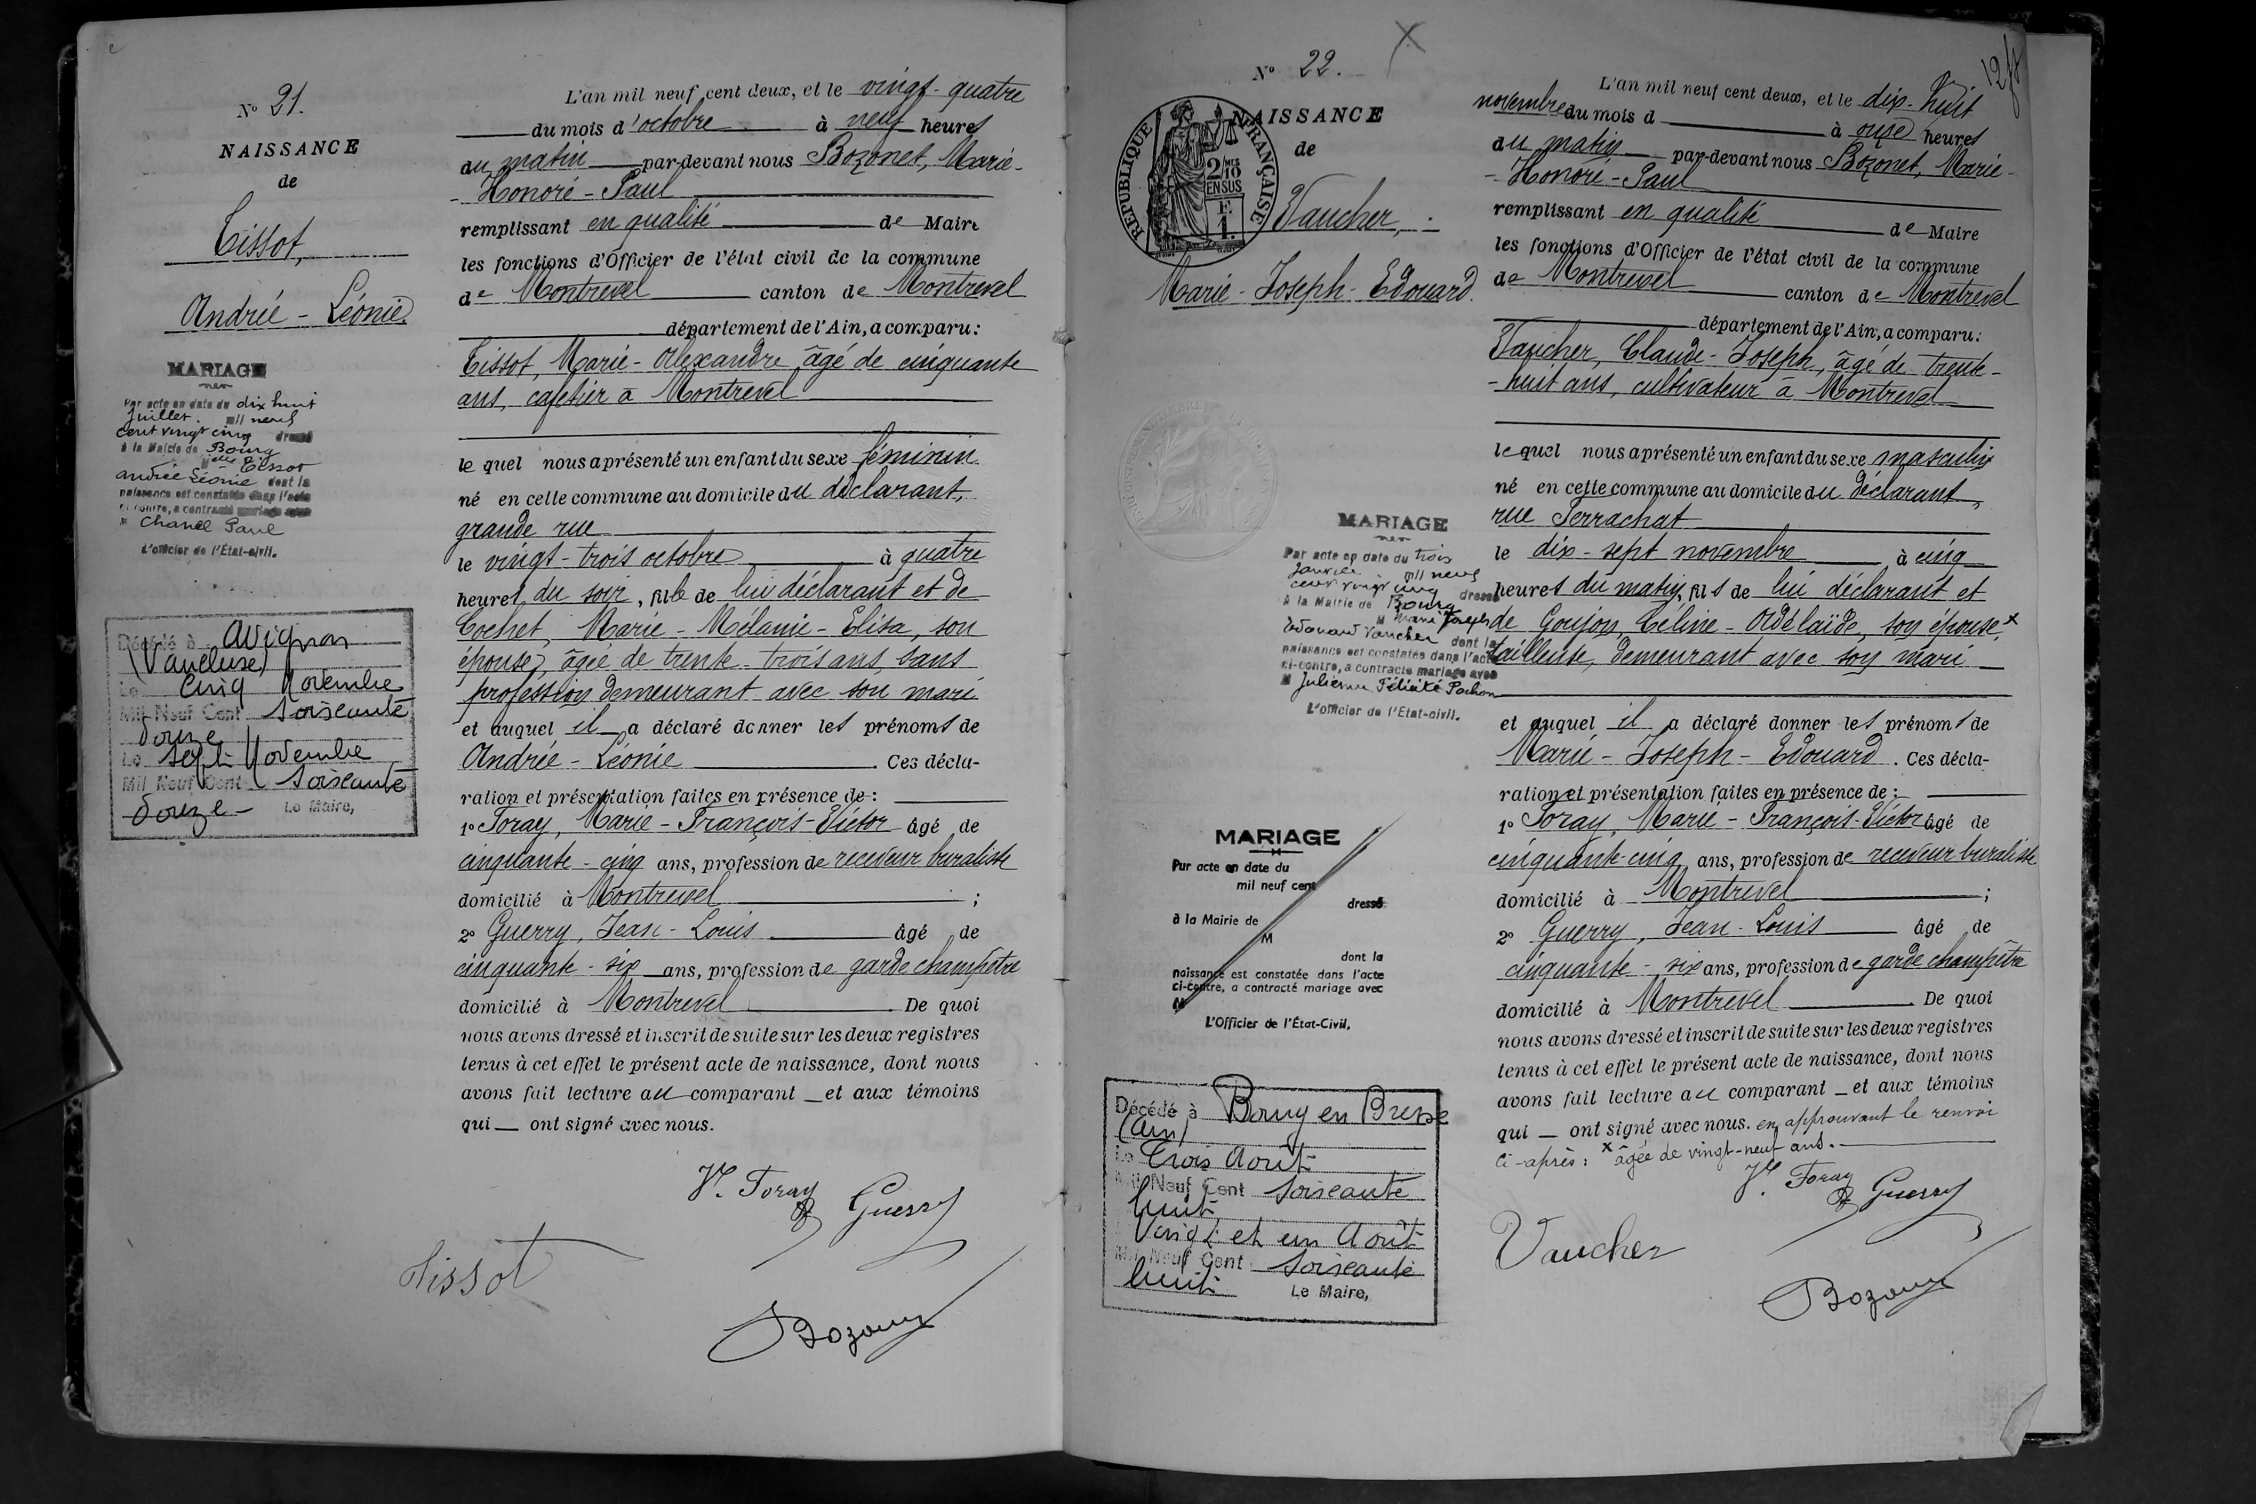 N° 21.
NAISSANCE
de
Tissot,
Andrée - Léonie
MARIAGE
Par acte en date du dix huit
Juillet mil neuf
cent vingt cinq dressé
à la Mairie de Bourg
Melle Tissot
andrée Léonie dont la
naissance est constatée dans l'acte
ci-contre, a contracté mariage avec
M Chanel Paul
L'officier de l'État-civil.
Décédé à Avignon
(Vaucluse)
Le Cinq Novembre
Mil Neuf Cent soixante
douze
Le sept Novembre
Mil Neuf Cent soixante
douze - Le Maire,
L'an mil neuf cent deux, et le vingt-quatre
du mois d'octobre à neuf heures
du matin par-devant nous Bozonet, Marie-
- Honoré - Paul
remplissant en qualité de Maire
les fonctions d'Officier de l'état civil de la commune
de Montrevel canton de Montrevel
département de l'Ain, a comparu:
Tissot, Marie - Alexandre âgé de cinquante
ans, cafetier à Montrevel
le quel nous a présenté un enfant du sexe féminin
né en cette commune au domicile du déclarant,
grande rue
le vingt-trois octobre à quatre
heures du soir, fille de lui déclarant et de
Cochet, Marie - Mélanie - Elisa, son
épouse, âgée de trente-trois ans, sans
profession demeurant avec son mari
et auquel il a déclaré donner les prénoms de
Andrée - Léonie. Ces décla-
ration et présentation faites en présence de:
1° Foray, Marie - François - Victor âgé de
cinquante - cinq ans, profession de receveur buraliste
domicilié à Montrevel;
2° Guerry, Jean - Louis âgé de
cinquante - six ans, profession de garde champêtre
domicilié à Montrevel. De quoi
nous avons dressé et inscrit de suite sur les deux registres
tenus à cet effet le présent acte de naissance, dont nous
avons fait lecture au comparant et aux témoins
qui ont signé avec nous.
Vr. Foray
Guerry
Tissot
Bozonet
12/8
N° 22.
NAISSANCE
de
RÉPUBLIQUE FRANÇAISE
2/10 EN SUS
F. 1.
Vaucher,
Marie - Joseph - Edouard.
MARIAGE
Par acte en date du trois
Janvier mil neuf
cent vingt cinq dressé
à la Mairie de Bourg
M Marie Joseph
Edouard Vaucher dont la
naissance est constatée dans l'acte
ci-contre, a contracté mariage avec
M Julienne Félicité Pochon
L'officier de l'État-civil.
MARIAGE
Par acte en date du
mil neuf cent
dressé
à la Mairie de
M
dont la
naissance est constatée dans l'acte
ci-contre, a contracté mariage avec
M
L'Officier de l'État-Civil,
Décédé à Bourg en Bresse
(Ain)
Le Trois Août
Mil Neuf Cent soixante
huit
Vingt et un Août
Mil Neuf Cent soixante
huit Le Maire,
L'an mil neuf cent deux, et le dix-huit
novembre du mois d à onze heures
du matin par-devant nous Bozonet, Marie-
- Honoré - Paul
remplissant en qualité de Maire
les fonctions d'Officier de l'état civil de la commune
de Montrevel canton de Montrevel
département de l'Ain, a comparu:
Vaucher, Claude - Joseph, âgé de trente-
- huit ans, cultivateur à Montrevel
le quel nous a présenté un enfant du sexe masculin
né en cette commune au domicile du déclarant,
rue Perrachat
le dix-sept novembre à cinq
heures du matin, fils de lui déclarant et
de Goujon, Céline - Adélaïde, son épouse, x
tailleuse, demeurant avec son mari
et auquel il a déclaré donner les prénoms de
Marie - Joseph - Edouard. Ces décla-
ration et présentation faites en présence de:
1° Foray, Marie - François - Victor âgé de
cinquante-cinq ans, profession de receveur buraliste
domicilié à Montrevel;
2° Guerry, Jean - Louis âgé de
cinquante - six ans, profession de garde champêtre
domicilié à Montrevel. De quoi
nous avons dressé et inscrit de suite sur les deux registres
tenus à cet effet le présent acte de naissance, dont nous
avons fait lecture au comparant et aux témoins
qui ont signé avec nous. en approuvant le renvoi
ci-après: x âgée de vingt-neuf ans.
Foray
Guerry
Vaucher
Bozonet